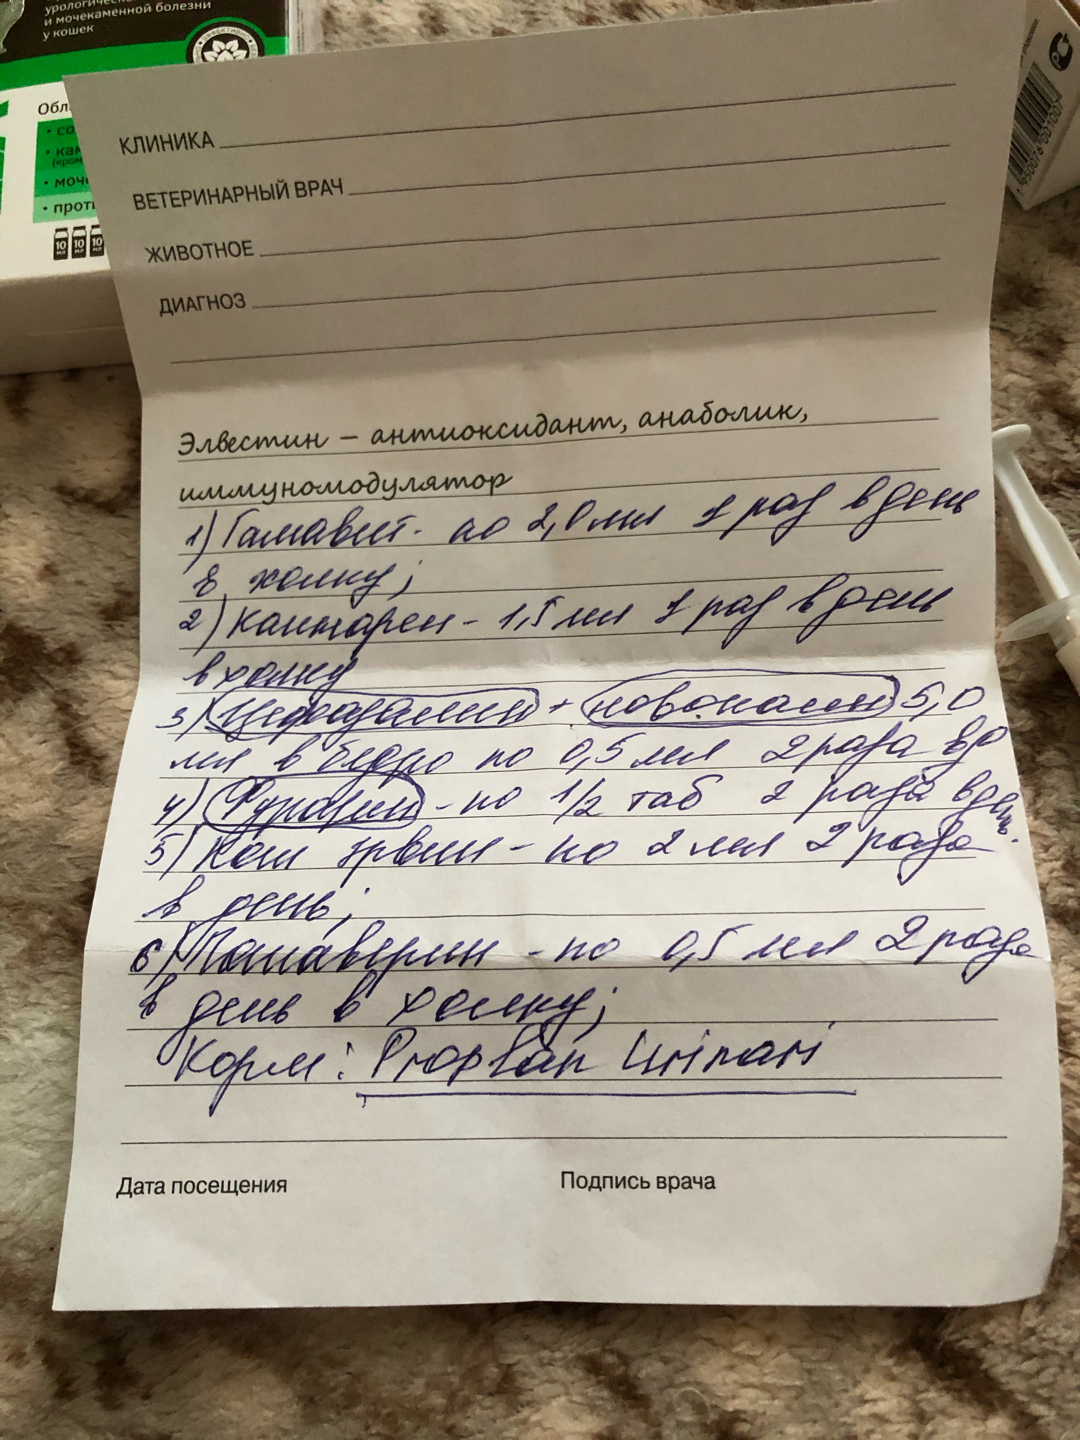 урологическо
и мочекаменной болезни
у кошек
Обл
• со
• кам
(кром
• моче
• проти
10 мл 10 мл 10 мл
КЛИНИКА
ВЕТЕРИНАРНЫЙ ВРАЧ
ЖИВОТНОЕ
ДИАГНОЗ
Элвестин – антиоксидант, анаболик,
иммуномодулятор
1) Гамавит - по 2,0 мл 1 раз в день
в холку;
2) Кантарен - 1,5 мл 1 раз в день
в холку
3) Цефазолин + новокаин 5,0
мл в бедро по 0,5 мл 2 раза
4) - по 1/2 таб 2 раза в день.
5) Кот Эрвин - по 2 мл 2 раза
в день;
6) Папаверин - по 0,5 мл 2 раза
в день в холку;
Корм: Proplan Urinari
Дата посещения
Подпись врача